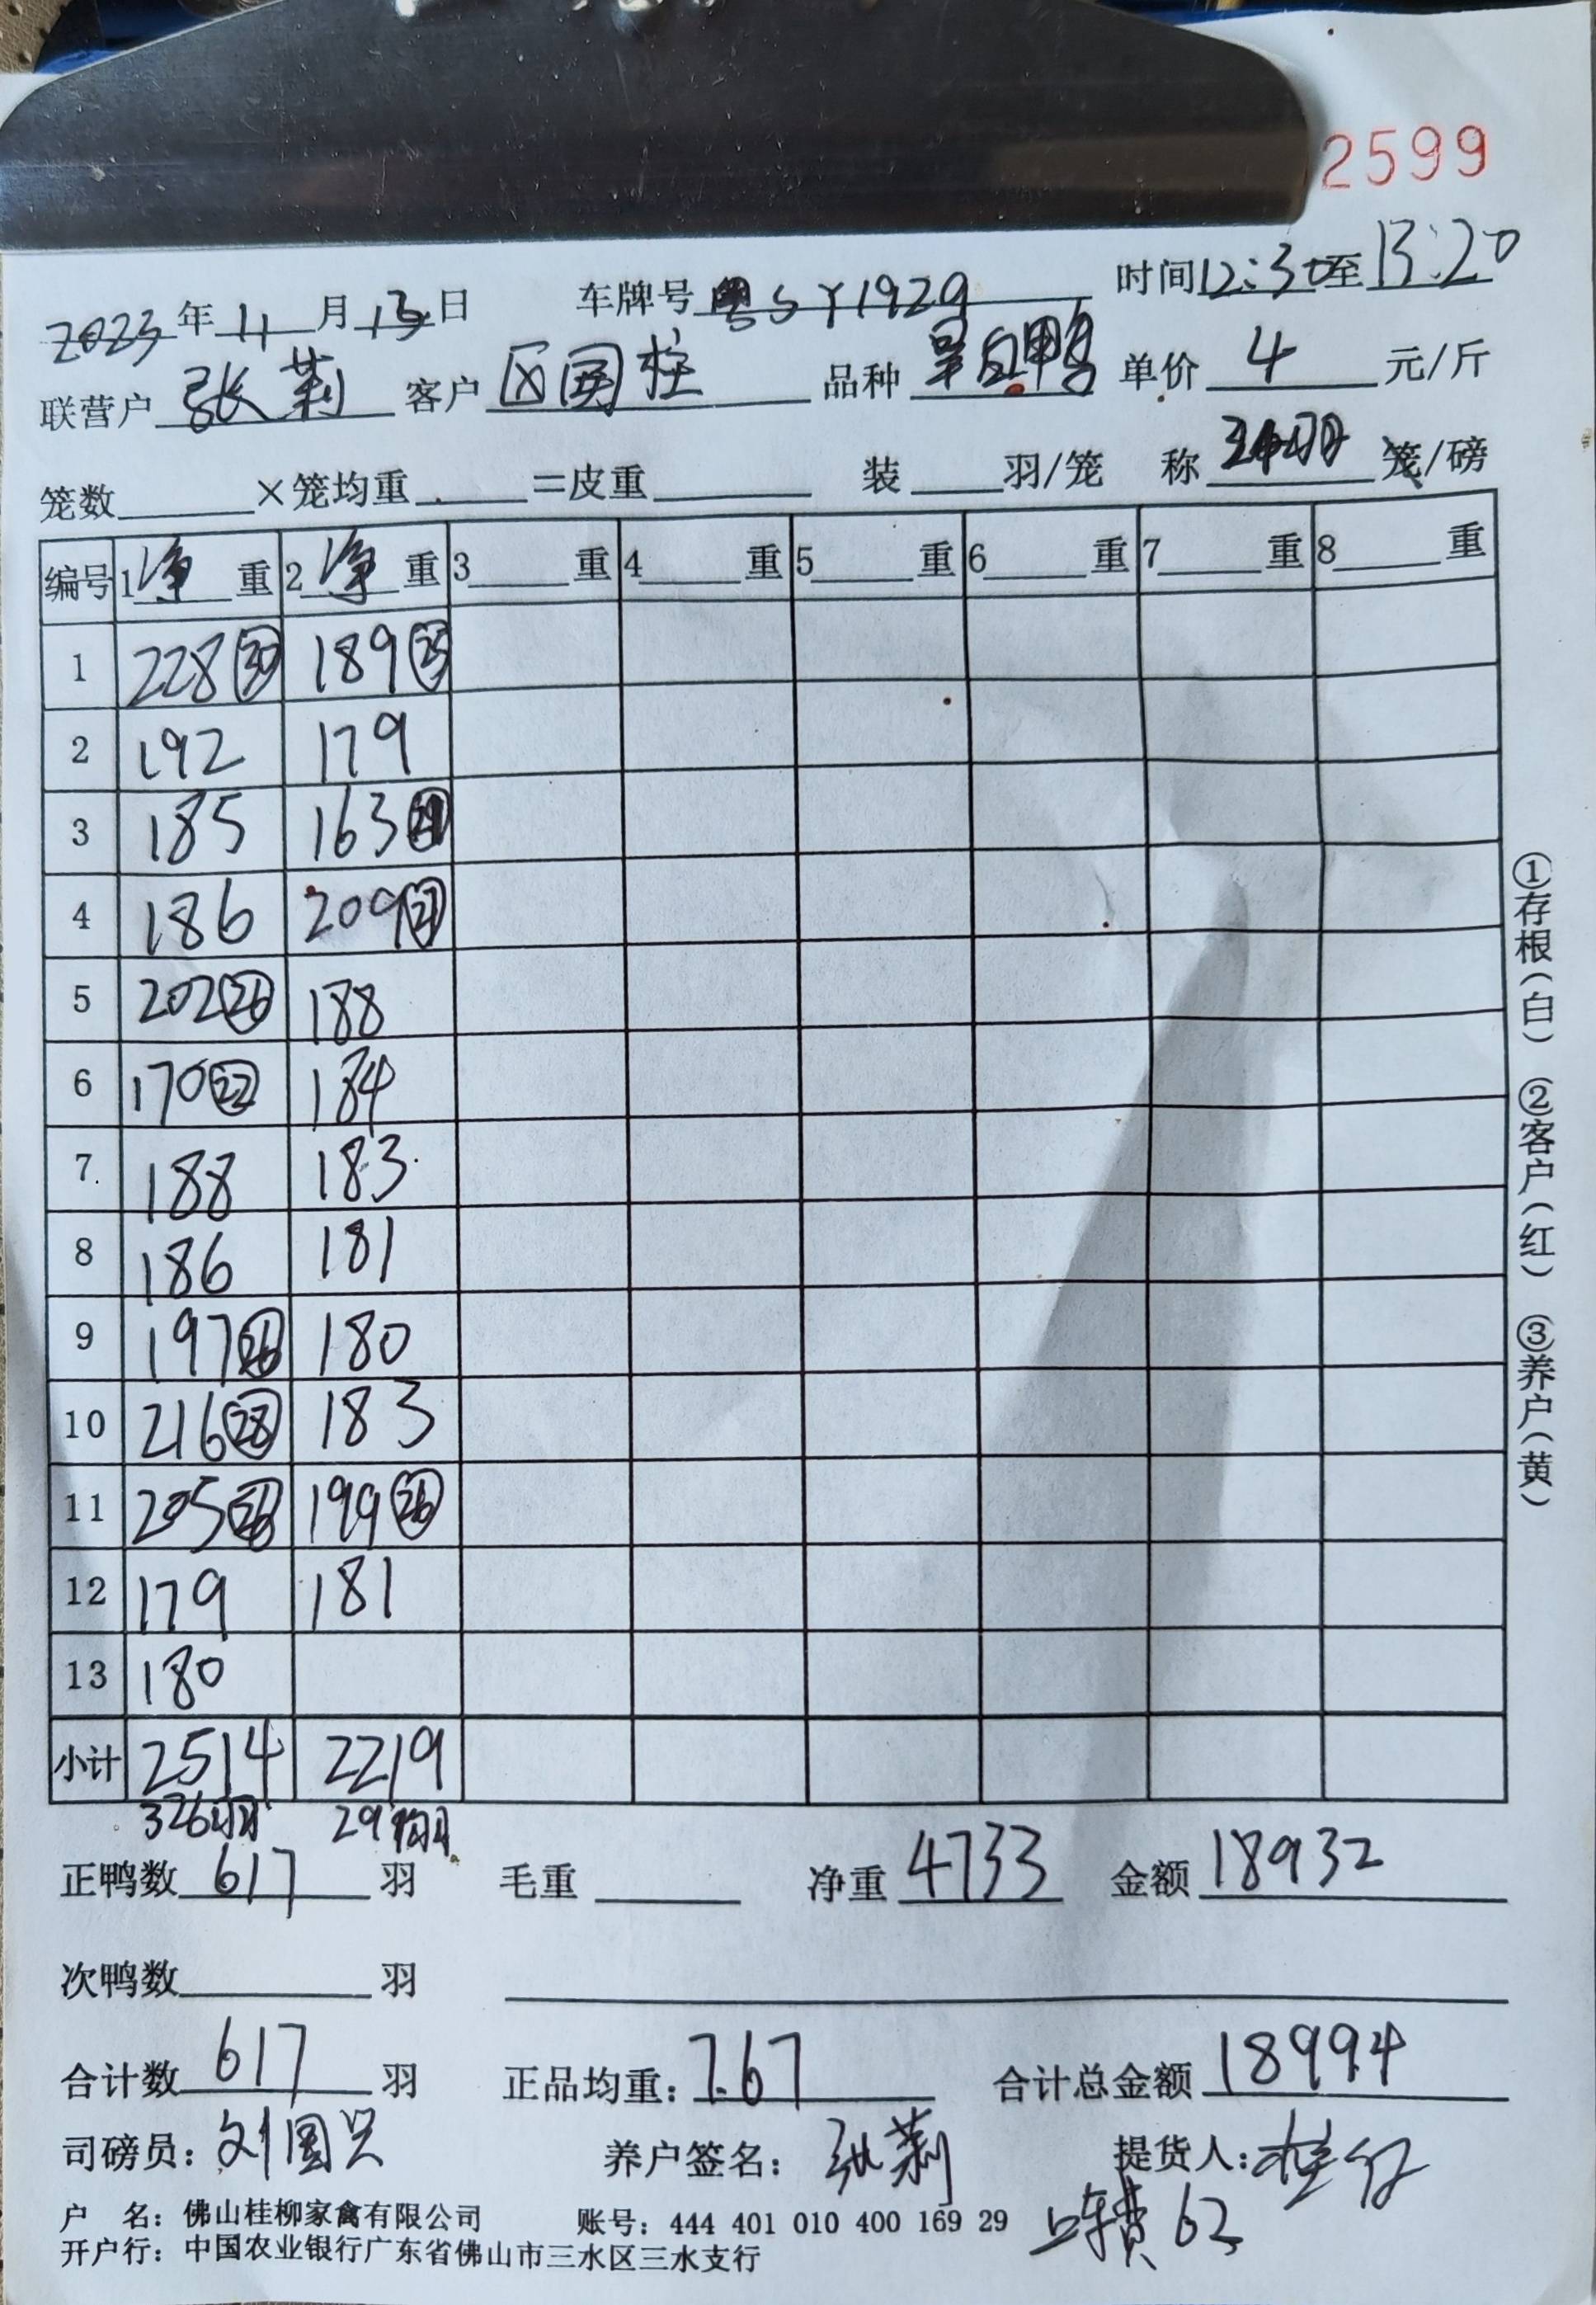 2599
2023年11月13日 车牌号粤SY1929 时间12:30至13:20
联营户 张莉 客户 区国柱 品种 单价 4 元/斤
笼数 ×笼均重 =皮重 装 羽/笼 称 24羽 笼/磅
编号 1净重 2净重 3 重 4 重 5 重 6 重 7 重 8 重
1 228 ㉚ 189 ㉕
2 192 179
3 185 163
4 186 209 ㉗
5 202 ㉖ 188
6 170 ㉒ 184
7 188 183
8 186 181
9 197 ㉖ 180
10 216 ㉘ 183
11 205 199 ㉖
12 179 181
13 180
小计 2514 2219
326羽 291羽
正鸭数 617 羽 毛重 净重 4733 金额 18932
次鸭数 羽
合计数 617 羽 正品均重: 7.67 合计总金额 18994
司磅员: 刘国兴 养户签名: 张莉 提货人: 桂仔
户 名: 佛山桂柳家禽有限公司 账号: 444 401 010 400 169 29 上车费62
开户行: 中国农业银行广东省佛山市三水区三水支行
①存根(白) ②客户(红) ③养户(黄)